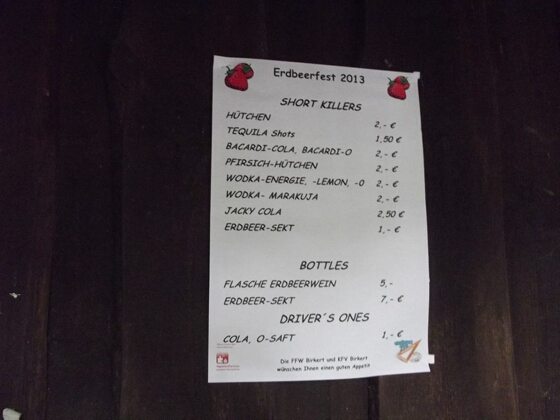 Erdbeerfest 2013
SHORT KILLERS
HÜTCHEN 2,- €
TEQUILA Shots 1,50 €
BACARDI-COLA, BACARDI-O 2,- €
PFIRSICH-HÜTCHEN 2,- €
WODKA-ENERGIE, -LEMON, -O 2,- €
WODKA- MARAKUJA 2,- €
JACKY COLA 2,50 €
ERDBEER-SEKT 1,- €
BOTTLES
FLASCHE ERDBEERWEIN 5,-
ERDBEER-SEKT 7,- €
DRIVER´S ONES
COLA, O-SAFT 1,- €
Die FFW Birkert und KFV Birkert
wünschen Ihnen einen guten Appetit